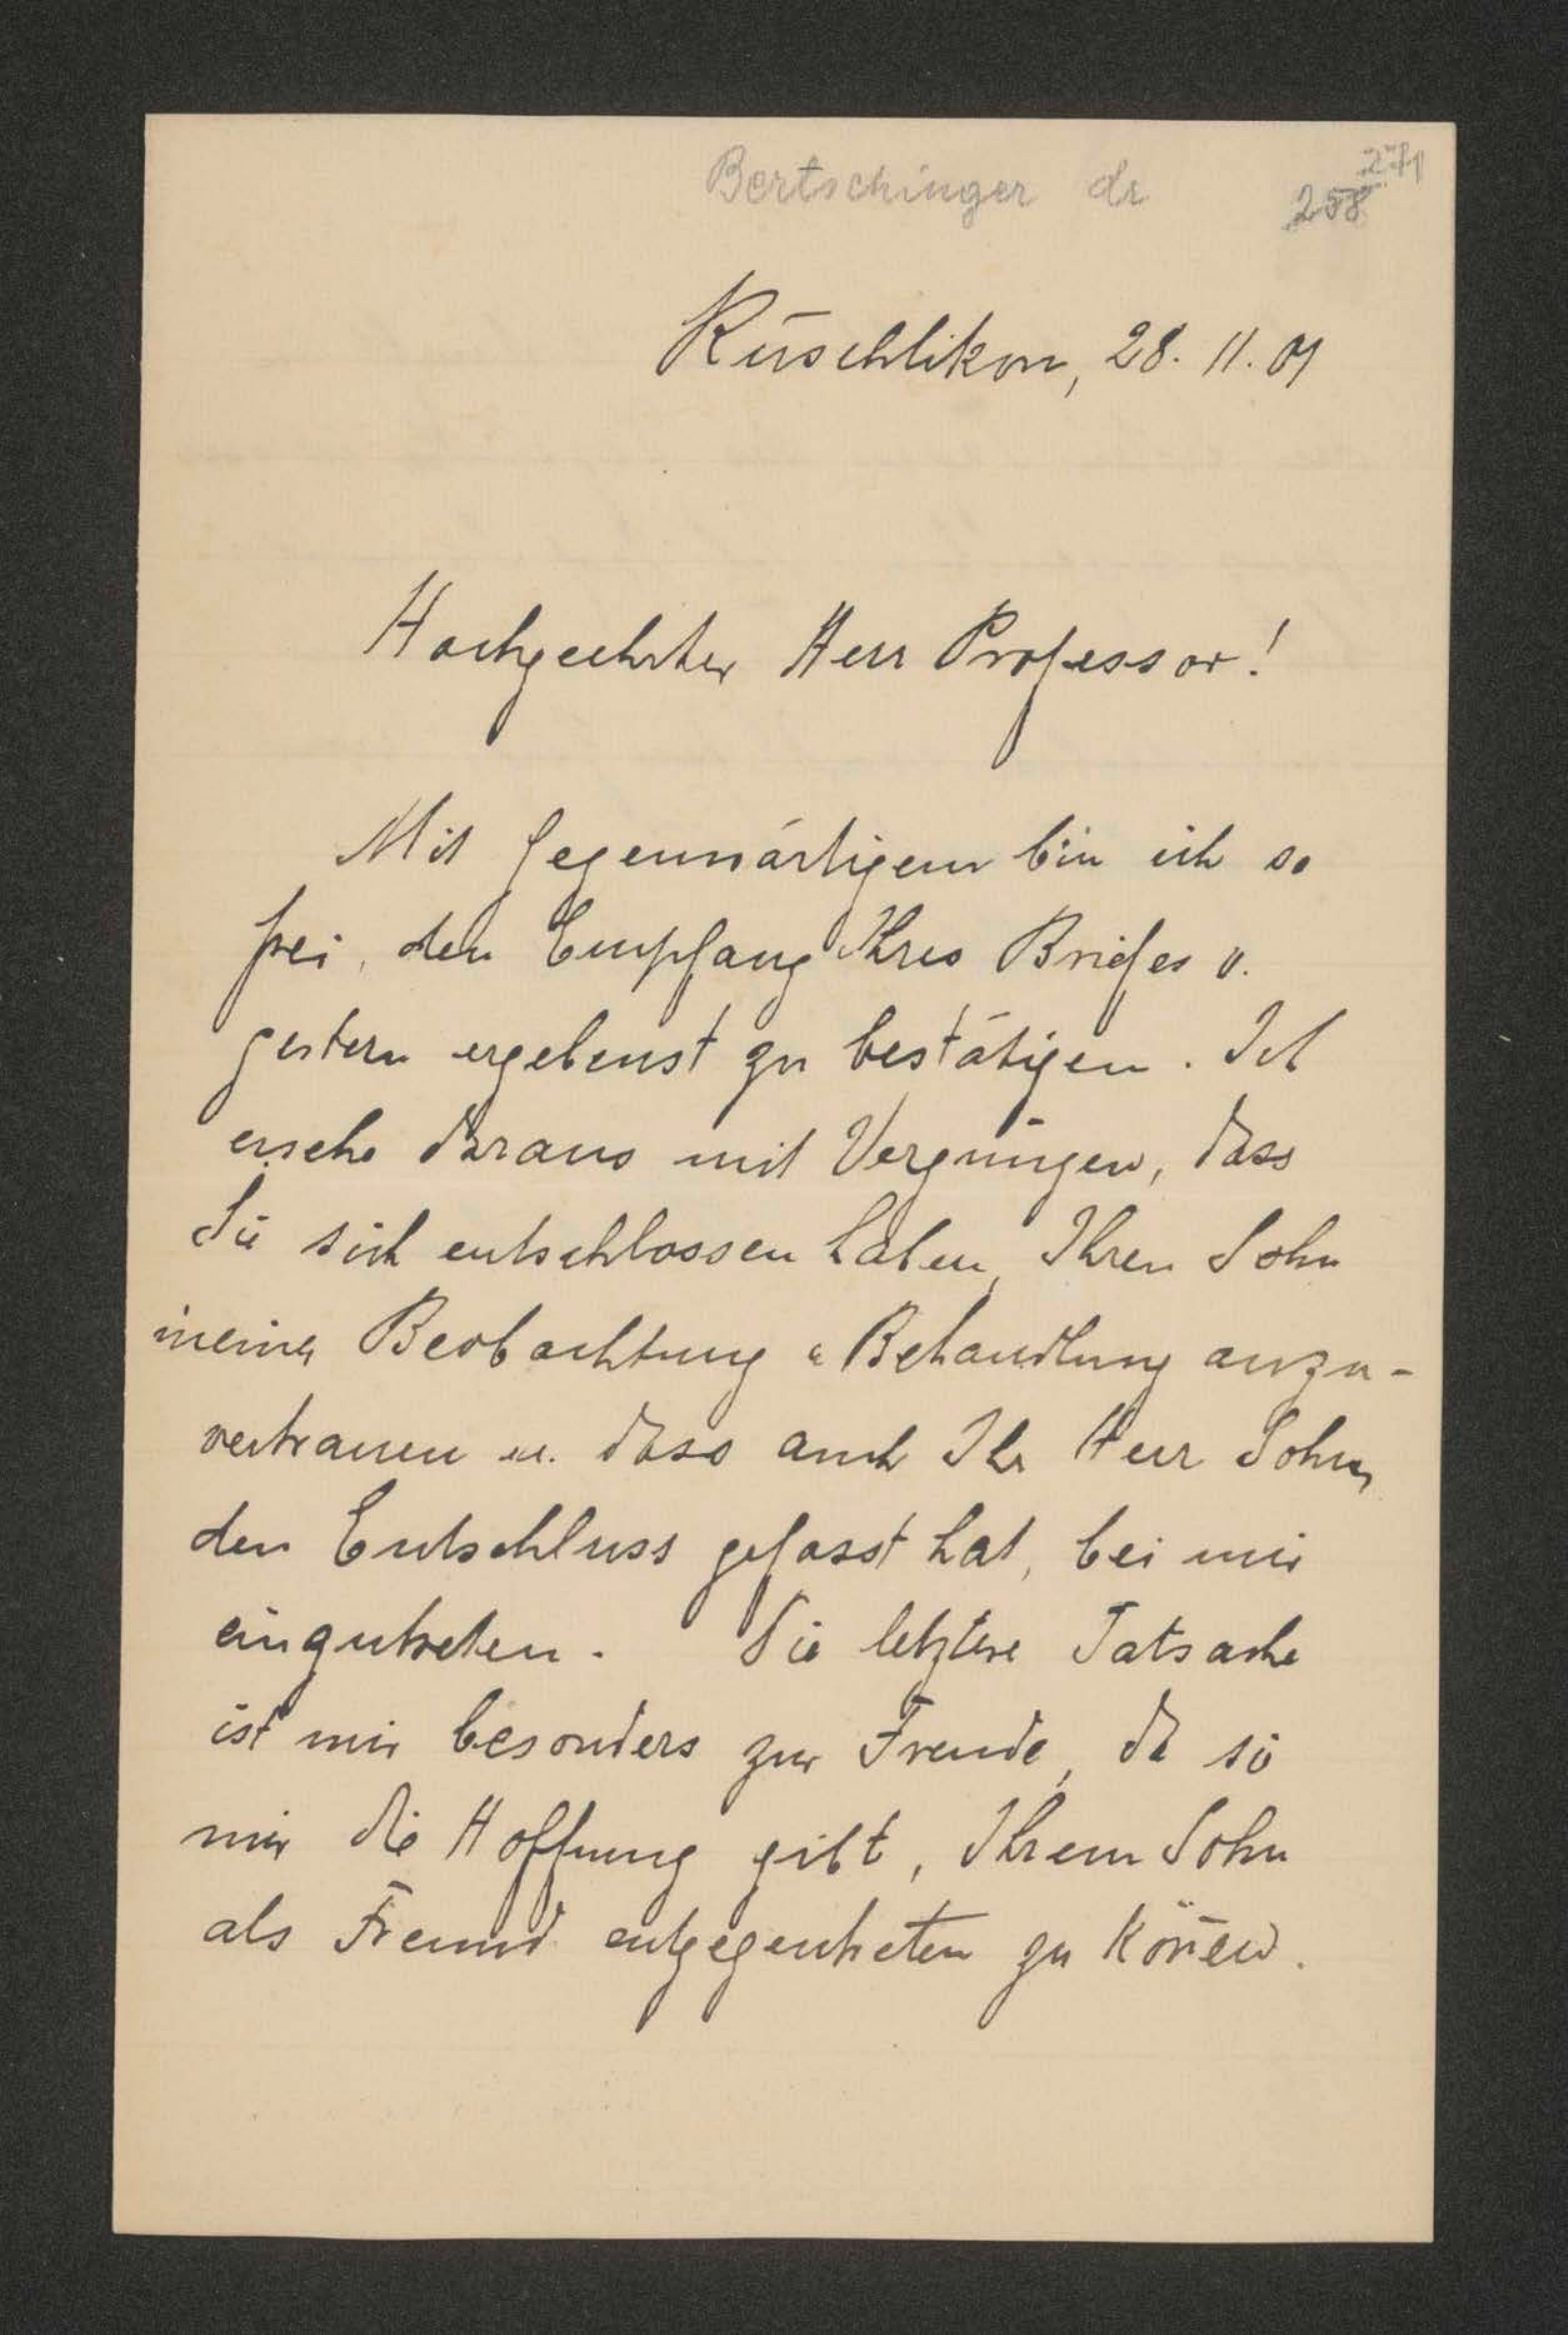 Bertschinger dr
271
258
Rüschlikon, 28. 11. 09
Hochgeehrter Herr Professor!
Mit Gegenwärtigem bin ich so
frei, den Empfang Ihres Briefes v.
gestern ergebenst zu bestätigen. Ich
ersehe daraus mit Vergnügen, dass
Sie sich entschlossen haben, Ihren Sohn
meiner Beobachtung & Behandlung anzu-
vertrauen u. dass auch Ihr Herr Sohn
den Entschluss gefasst hat, bei mir
einzutreten. Die letztere Tatsache
ist mir besonders zur Freude, da sie
mir die Hoffnung gibt, Ihrem Sohn
als Freund entgegentreten zu kön̄en.